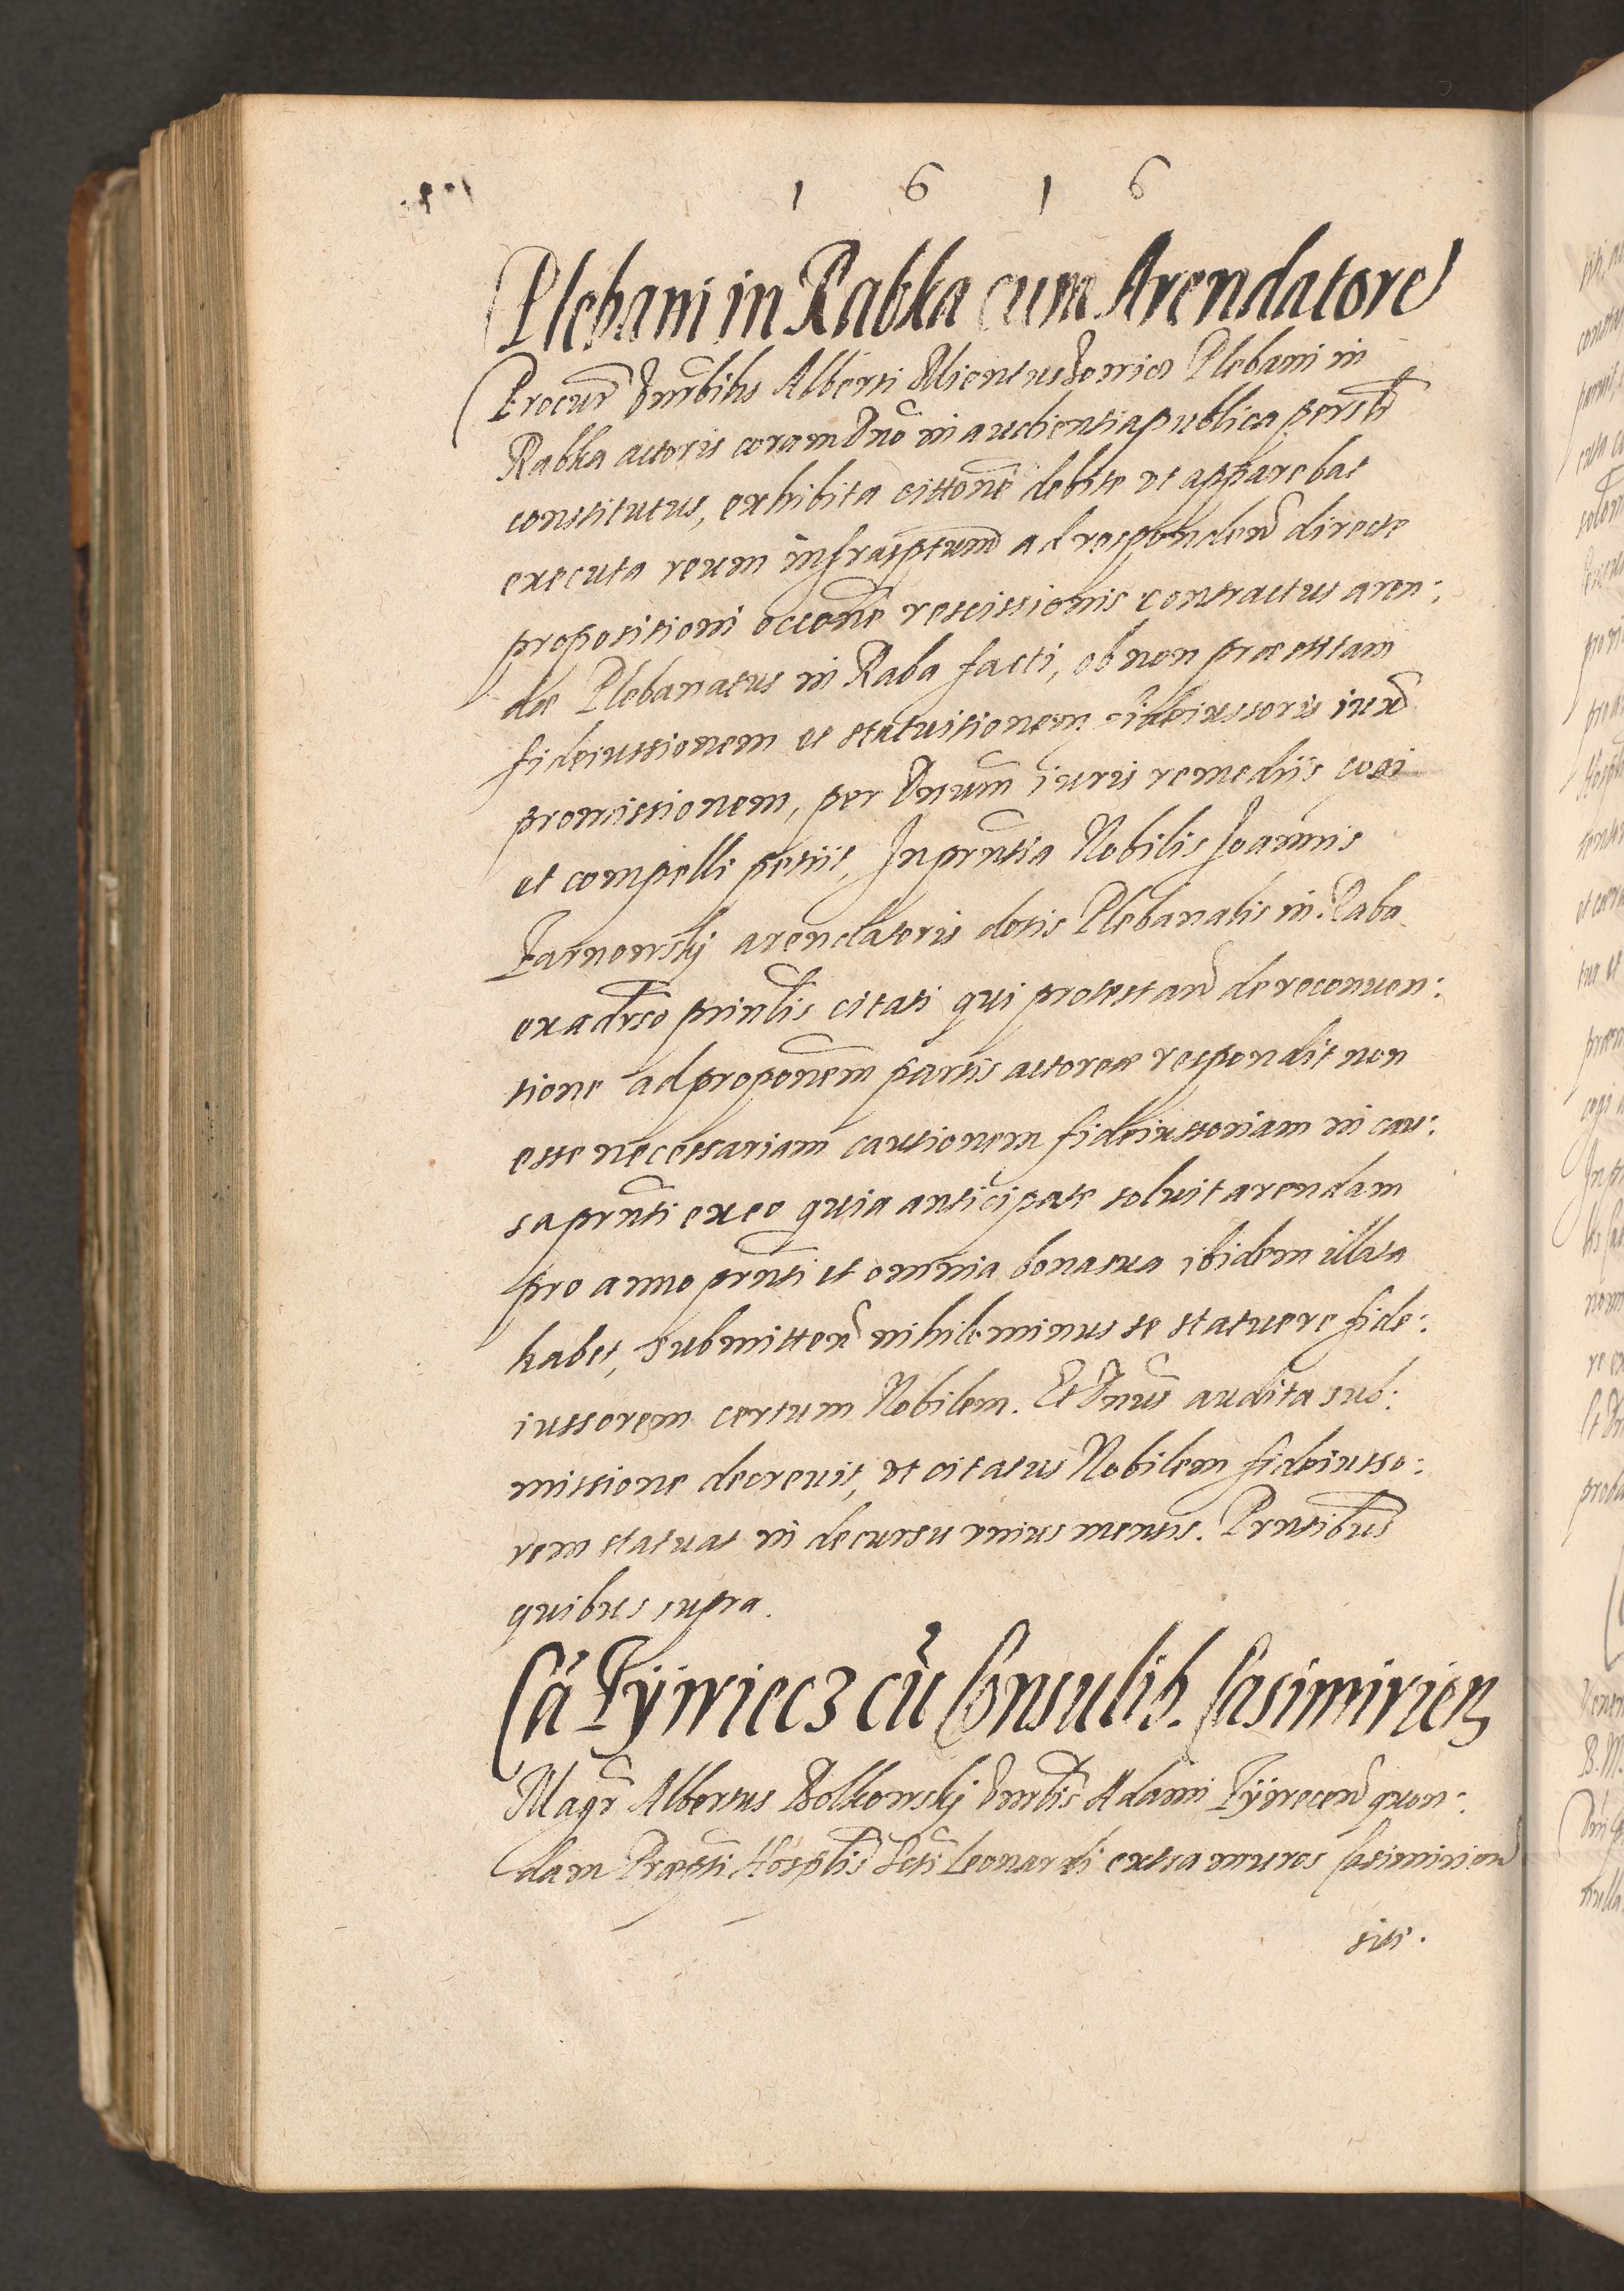 1 6 1 6
Plebani in Rabka cum Arendatore
Procur Venrbilis Alberti Plebani in
Rabka actoris coram Dno in audientia publica personlr
constitutus, exhibita citttone debite vt apparebat
executa reum infrascptum ad responden directe
propositioni occone rescissionis contractus aren:
dæ Plebanatus in Raba facti, ob non præstitam
fideiussionem et statuitionem fideiussoris iux
promissionem, per Dnum iuris remediis cogi
et compelli petiit, In prntia Nobilis Joannis
Tarnowskij arendatoris dotis Plebanalis in Raba
ex adrso prinlis citati qui protestan de reconuen:
tione ad proponem partis actoreæ respondit non
esse necessariam cautionem fideiussoriam in cau:
sa prnti ex eo quia anticipate soluit arendam
pro anno prnti et omnia bona sua ibidem illata
habet, submitten nihilominus se statuere fide:
iussorem certum Nobilem. Et Dnus audita sub:
missione decreuit, vt citatus Nobilem fideiusso:
rem statuat in decursu vnius mensis. Prntibus
quibus supra.
Ca Tÿwiecz cu Consulib. Casimirien
Magr Albertus Bolkowskij Venrlis Adami Tÿwiecen quon:
dam Præpti Hosplis Scti Leonardi extra muros Casimirien
siti.